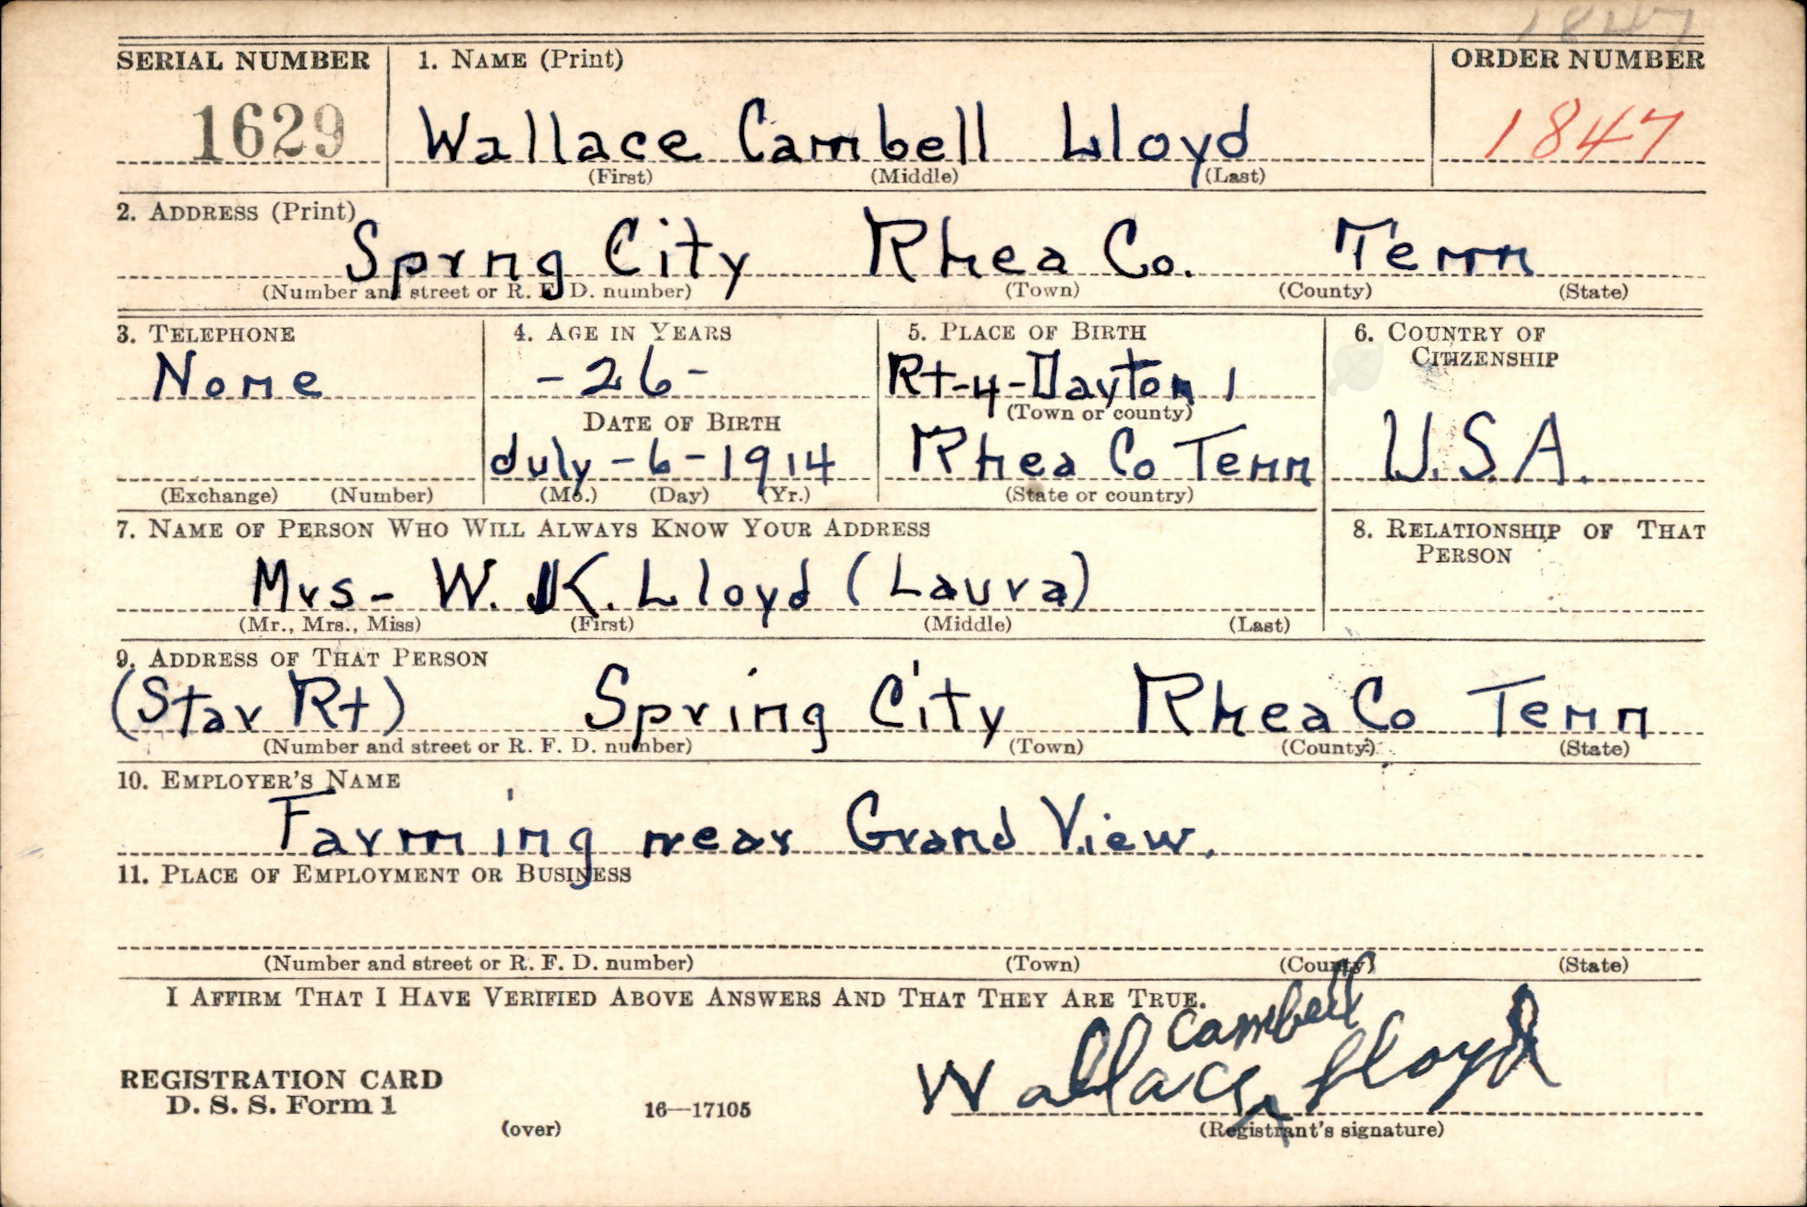 1847
SERIAL NUMBER 1. NAME (Print) ORDER NUMBER
1629 Wallace Cambell Lloyd 1847
(First) (Middle) (Last)
2. ADDRESS (Print)
Sprng City Rhea Co. Tenn
(Number and street or R. F. D. number) (Town) (County) (State)
3. TELEPHONE 4. AGE IN YEARS 5. PLACE OF BIRTH 6. COUNTRY OF
CITIZENSHIP
None - 26 - Rt-4-Dayton 1
(Town or county)
DATE OF BIRTH
July - 6 - 1914 Rhea Co Tenn U.S.A.
(Exchange) (Number) (Mo.) (Day) (Yr.) (State or country)
7. NAME OF PERSON WHO WILL ALWAYS KNOW YOUR ADDRESS 8. RELATIONSHIP OF THAT
PERSON
Mrs- W. K. Lloyd (Laura)
(Mr., Mrs., Miss) (First) (Middle) (Last)
9. ADDRESS OF THAT PERSON
(Star Rt) Spring City Rhea Co Tenn
(Number and street or R. F. D. number) (Town) (County) (State)
10. EMPLOYER'S NAME
Farming near Grand View.
11. PLACE OF EMPLOYMENT OR BUSINESS
(Number and street or R. F. D. number) (Town) (County) (State)
I AFFIRM THAT I HAVE VERIFIED ABOVE ANSWERS AND THAT THEY ARE TRUE.
Cambell
Wallace Lloyd
REGISTRATION CARD
D. S. S. Form 1 16—17105
(over) (Registrant's signature)